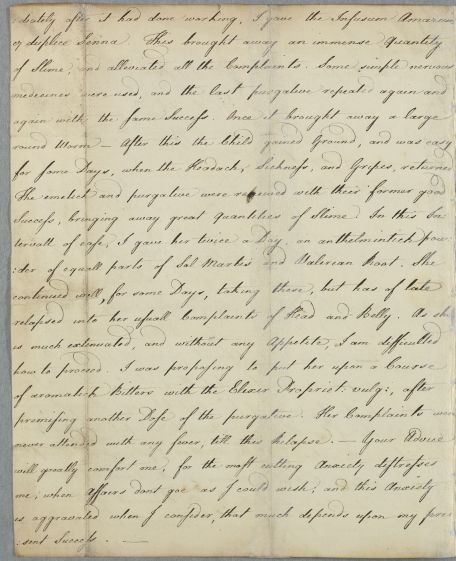 :diately after it had done working, I gave the Infusum Amarum
cy duplice Senna This brought away an immense Quantity
of Slime, and alleviated all the Complaints. Some simple nervous
medecines were used, and the last purgative repeated again and
again with the same Success. Once it brought away a large
round Worm — After this the Child gained Ground, and was easy
for some Days, when the Headach, Sickness, and Gripes, returned
The emetick and purgative were renewed with their former good
Success, bringing away great quantities of Slime In this In:
tervall of ease, I gave her twice a Day an anthelmintick pow:
:der of equall parts of Sal Martis and Valerean Root. She
continued well, for some Days, taking these, but has of late
relapsed into her usuall Complaints of Head and Belly. As she
is much extenuated, and without any Appetite, I am difficulted
how to proceed. I was proposing to put her upon a Course
of aromatick Bitters with the Elixir Propriet: vulg:, after
premising another Dose of the purgative. Her Complaints were
never attended with any fever, till this relapse. — Your Advice
will greatly comfort me, for the most cutting Anxiety distresses
me, when Affairs dont goe as I could wish; and this Anxiety
is aggravated when I consider, that much depends upon my pre:
:sent Success. —